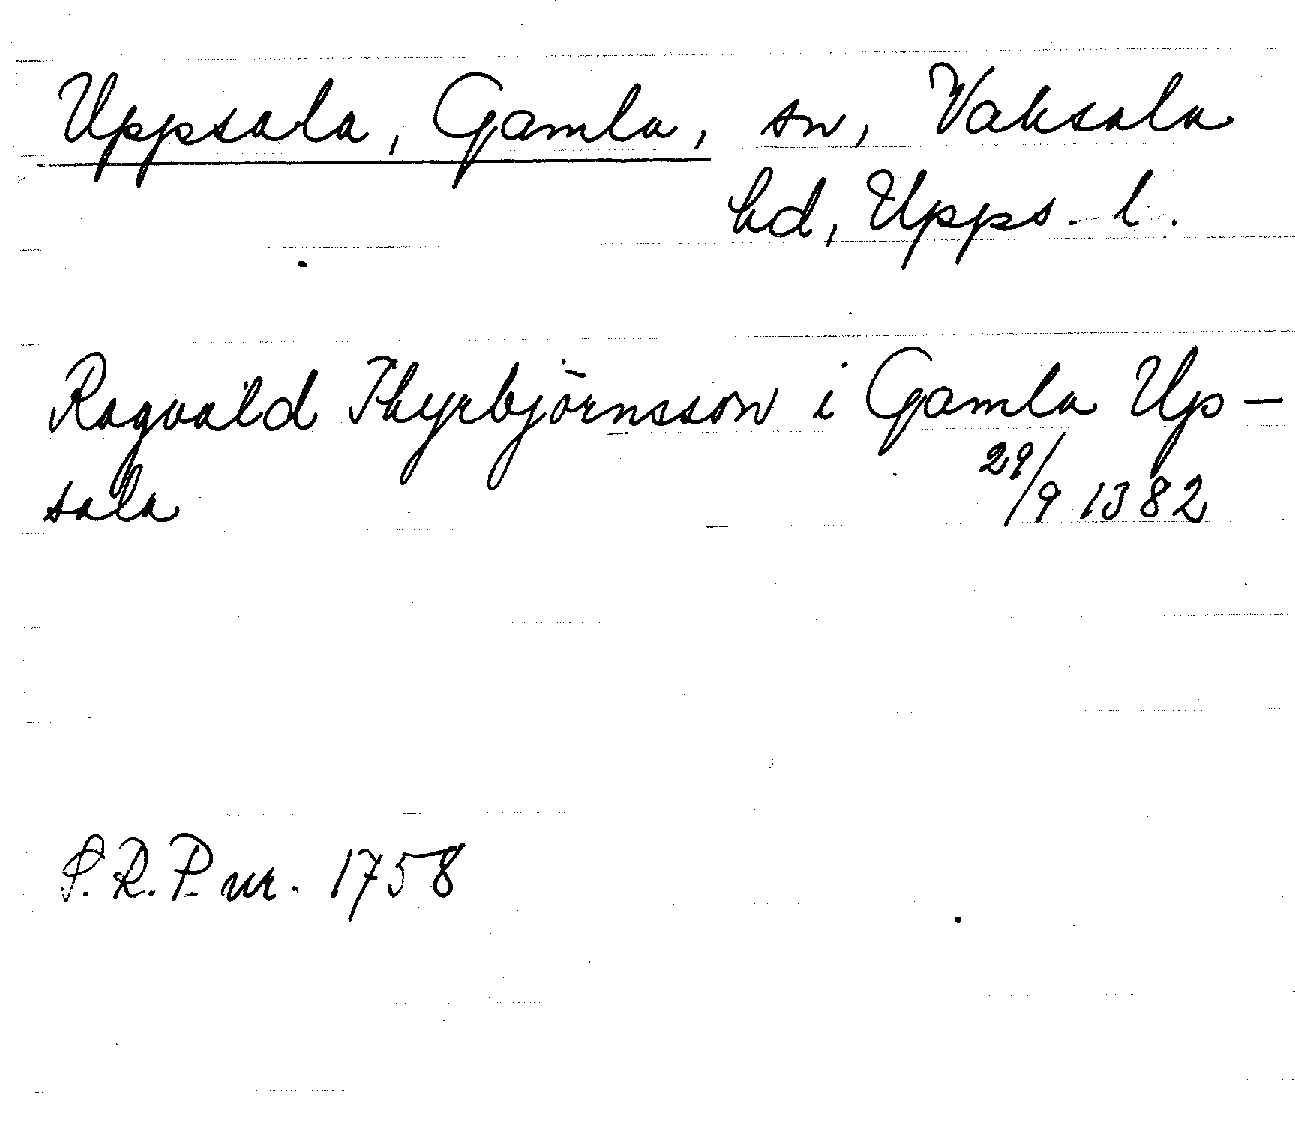 Uppsala, Gamla, sn, Vaksala
hd, Upps. l.
Ragvald Thyrbjörnsson i Gamla Up-
sala 29/9 1382
S.R.P. nr. 1758